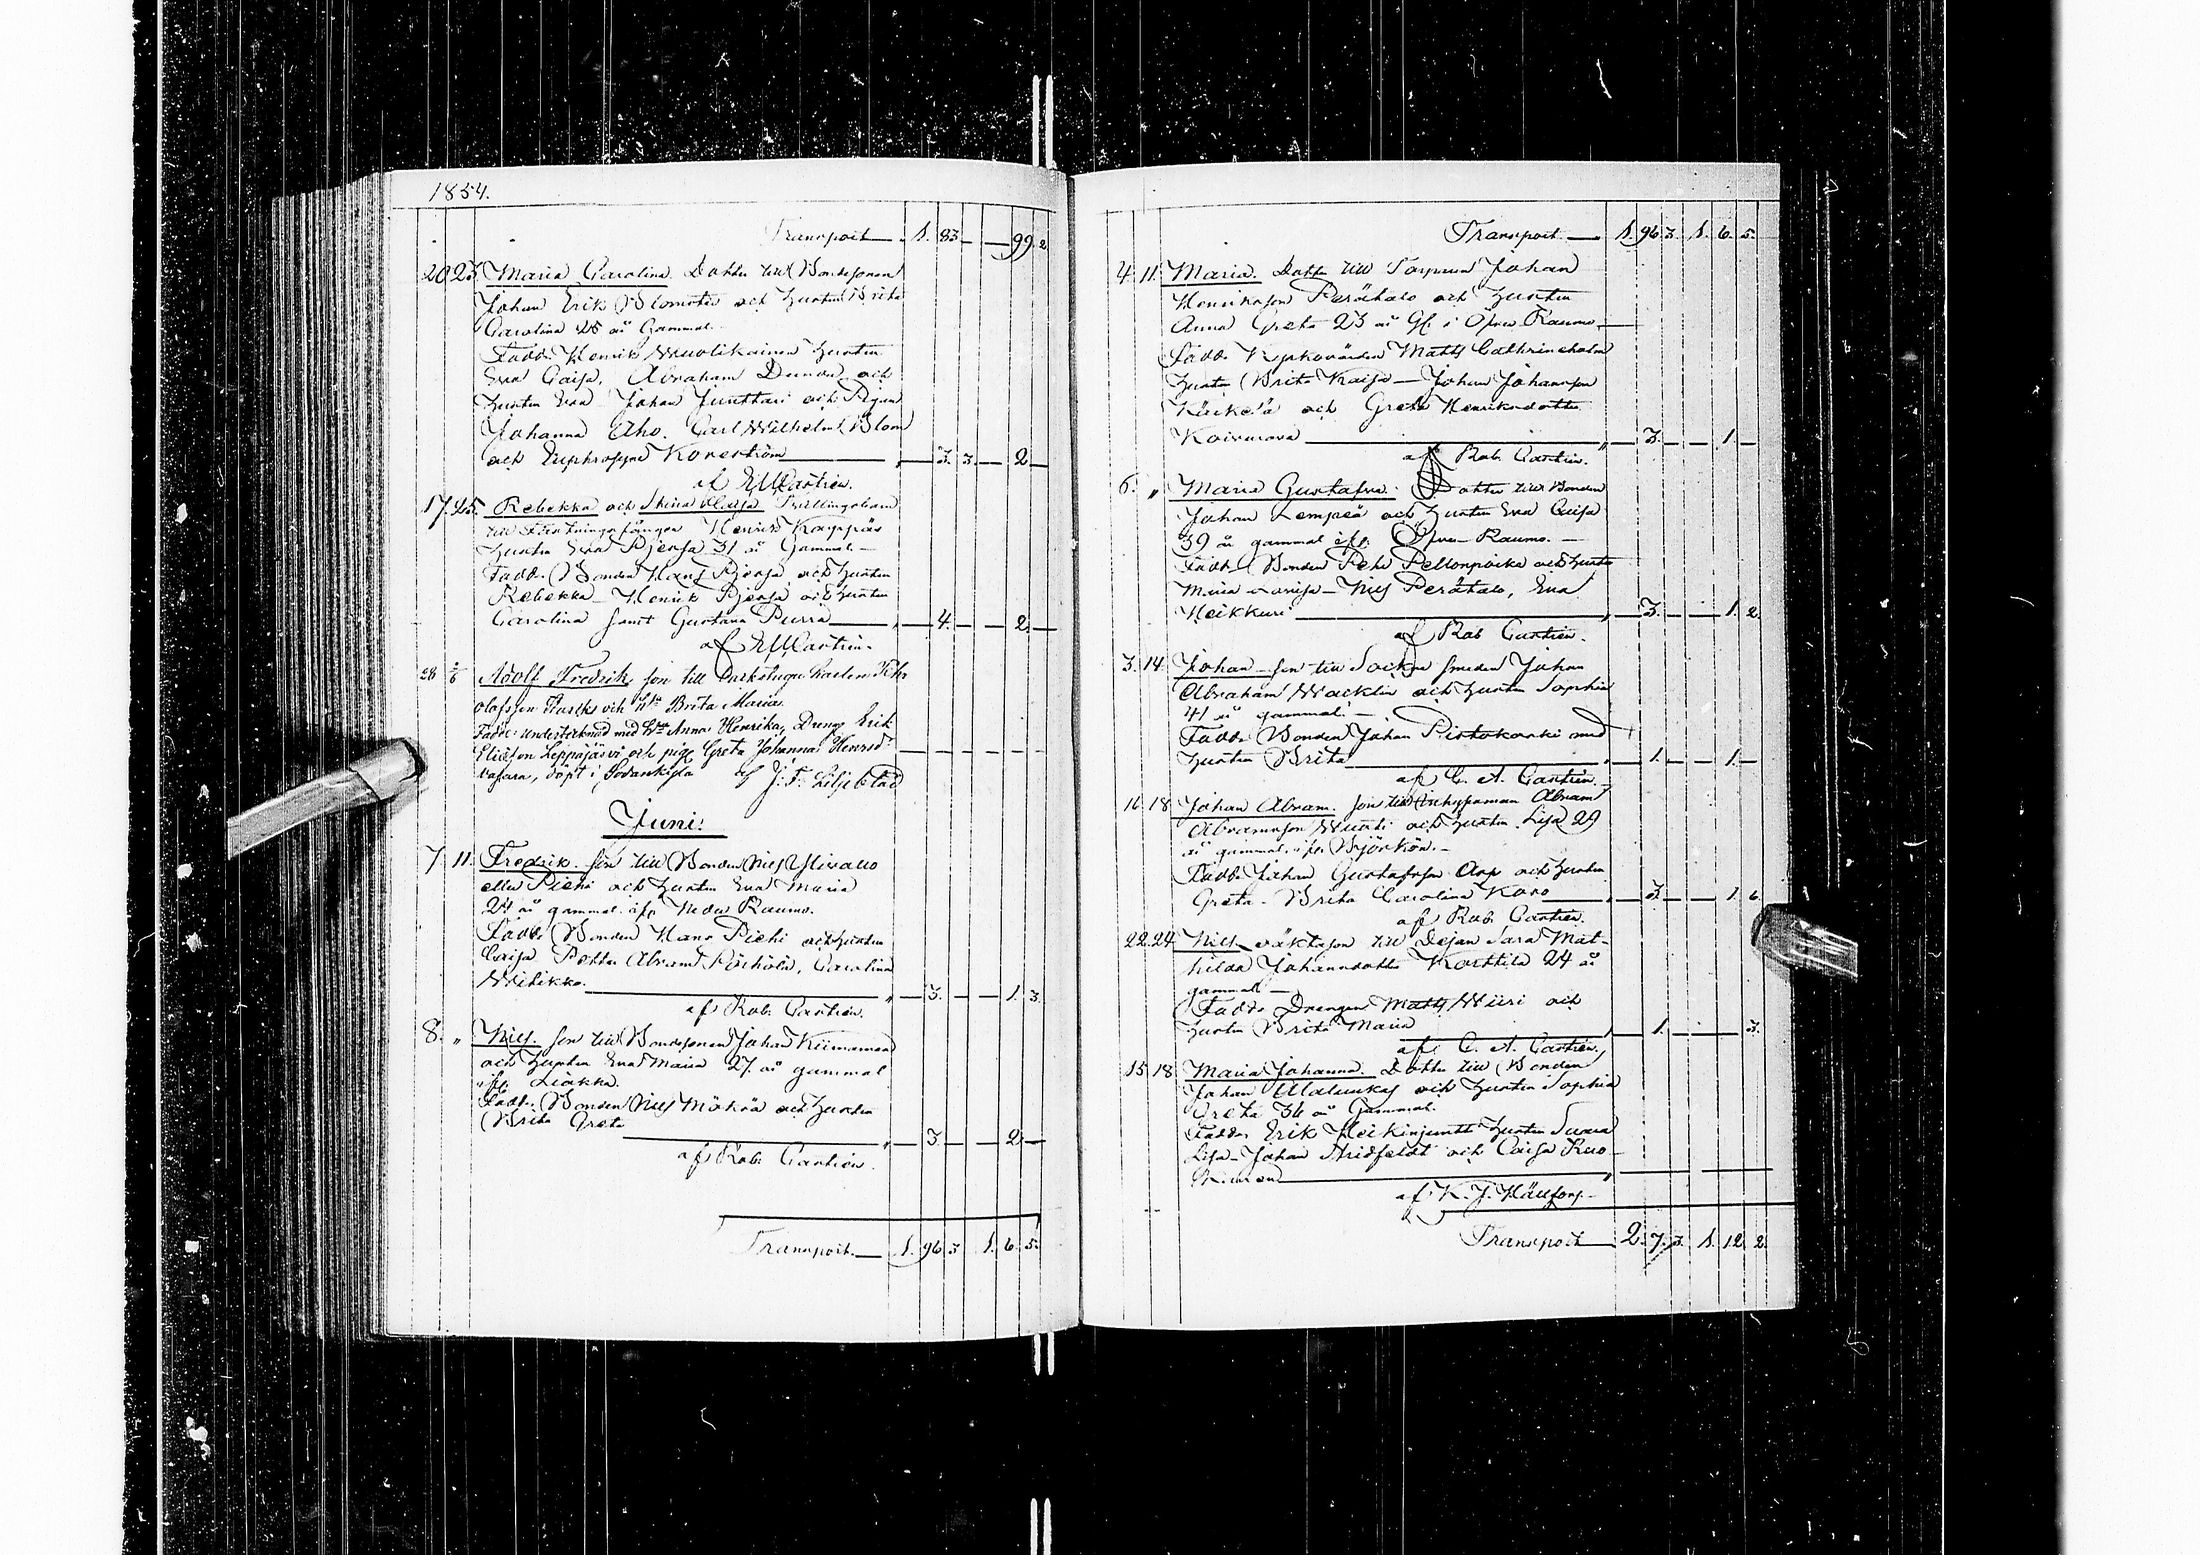 1854.
Transport — 1. 83 — — 99. 2
20 23 Maria Carolina. Dotter till Bondesonen
Johan Erik Blomster och hustrun Brita
Carolina 25 år Gammal.
Fadd. Henrik Muotikainen hustrun
Eva Caisa, Abraham och
hustrun Eva Johan Junttari och Pigan
Johanna Aho. Carl Wilhelm Blom
och Euphrosyne — 3. 3. — 2 —
af Castrén.
17. 25. Rebekka och Stina Caisa Trillingsbarn
till Henrik
hustru Eva 31 år Gammal. —
Fadd. Bonden Hans och hustrun
Rebekka — Henrik och hustrun
Carolina samt Gustava Purra — 4. — — 2. —
af Castrén.
28 2/6 Adolf Fredrik son till Karlen
Olafsson och Hu Brita Maria.
Fadd: undertecknad med hu Anna Henrika, Dreng Erik
Eliasson Leppäjärvi och pige Greta Johanna Henrsd:
döpt i Sodankylä af J. F. Liljeblad
Juni.
7 11. Fredrik. son till Bonden Nils Ylivallo
eller Piehi och hustrun Eva Maria
24 år gammal. ifr. Neder Raumo.
Fadd. Bonden Hans Piehi och hustrun
Caisa Petter Abram Pörhölä, Carolina
— 3. — — 1. 3.
af Rob. Castrén.
8. " Nils. son till Bondesonen Johan Kiimamaa
och hustrun Eva Maria 27. år gammal
ifr. Liakka.
Fadd. Bonden Nils och hustrun
Brita Greta — 3 — — 2. —
af Rob. Castrén.
Transport. — 1. 96 3 1. 6. 5.
Transport. — 1. 96. 3. 1. 6. 5.
4. 11. Maria. Dotter till Torparen Johan
Henriksson Perätalo och hustrun
Anna Greta 23 år Gl. i Öfver Raumo. —
Fadd. Kyrkovärden Matts Cathrineholm
hustrun Brita Kaisa — Johan Johansson
och Greta Henriksdotter
Koivuvaara — 3. — — 1. —
af Rob. Castrén.
6. " Maria Gustafva. Dotter till Bonden
Johan Lempeä och hustrun Eva Caisa
39 år gammal ifr. Öfver Raumo. —
Fadd. Bonden Pehr Pellonpoika och hustrun
Maria Lovisa — Nils Perätalo, Eva
Heikkuri — 3. — — 1. 2.
af Rob Castrén.
3. 14 Johan son till Sockne smeden Johan
Abraham Wacklin och hustrun Sophia
41 år gammal. —
Fadd. Bonden Johan Pistokoski med
hustrun Brita — 1. — — 1. —
af C. A. Castrén.
16. 18. Johan Abram. son till Inhysesman Abram
Abramsson och hustrun Lisa 29
år gammal, ifr. Björkön. —
Fadd. Johan Gustafsson Arp och hustrun
Greta — Brita Carolina Karo — 3. — — 1. 6.
af Rob. Castrén.
22. 24. Nils oäkta son till Dejan Sara Mat-
hilda Johansdotter Karttila 24 år
gammal —
Fadd. Drengen Matts Wiiri och
hustrun Brita Maria — 1. — — 3.
af C. A. Castrén.
15 18 Maria Johanna. Dotter till Bonden
Johan Alaluukas och hustrun Sophia
Greta 36 år Gammal.
Fadd. Erik Heikinjuntti hustrun Susna
Lisa — Johan Stridfeldt och Caisa Ruo-
kanen —
af K. J. Hällfors —
Transport 2. 7. 3. 1. 12. 2.